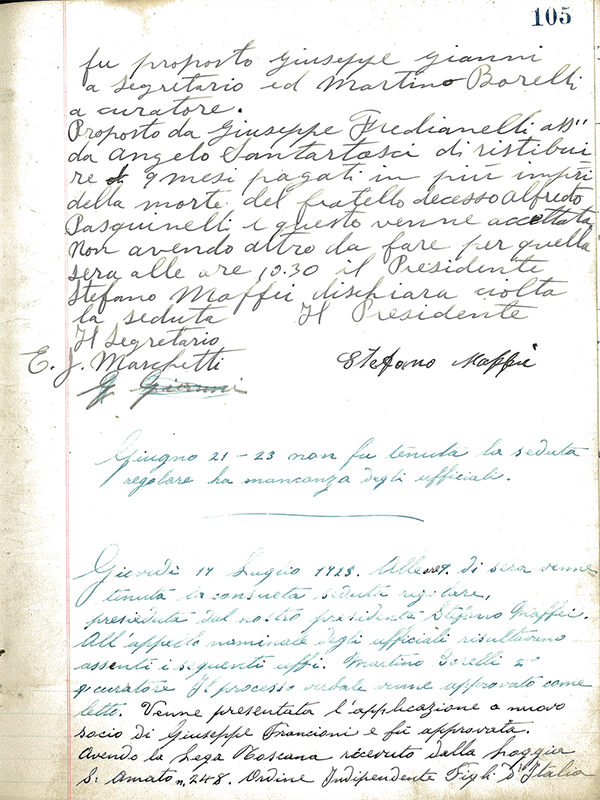 105
fu proposto Giuseppe Gianni
a segretario ed Martino Borelli
a curatore.
Proposto da Giuseppe Fredianelli ass"
da Angelo Santartosci di ristibui
re 9 mesi pagati in più impri
della morte del fratello decesso Alfredo
Pasquinelli e questo venne accettata
Non avendo altro da fare per quella
sera alle ore 10.30 il Presidente
Stefano Maffei dischiara ciolta
la seduta Il Presidente
Il Segretario
E. J. Marchetti Stefano Maffei
G Gianni
Giugno 21-23 non fu tenuta la seduta
regolare ha mancanza degli ufficiali.
Giovedi Luglio 1923. Alle ore 9. di sera venne
tenuta la consueta seduta regolare,
presieduta dal nostro presidente Stefano Maffei.
All'appello nominale degli ufficiali risultarono
assenti i seguenti uffi. Martino Borelli
curatore Il processo verbale venne approvato come
letto. Venne presentata l'applicazione a nuovo
socio di Giuseppe Francioni e fù approvata.
Avendo la Lega Toscana ricevuto dalla Loggia
S: Amato n, 248. Ordine Indipendente Figli D'Italia